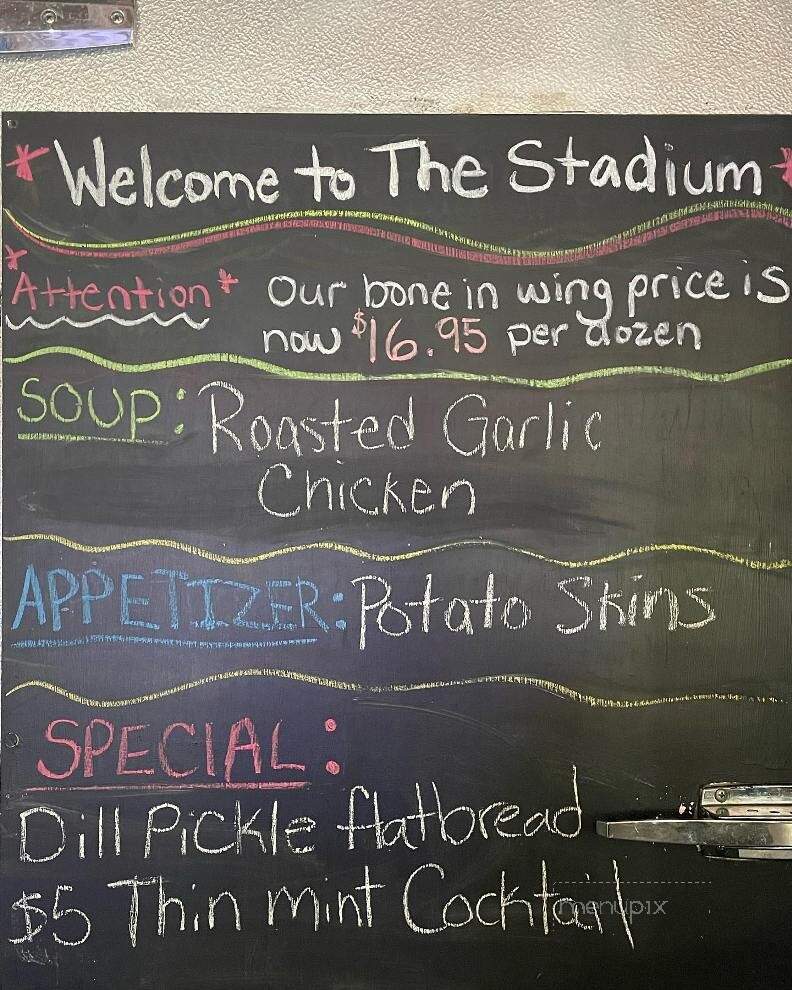 * Welcome to The Stadium *
* Attention * Our bone in wing price is
now $16.95 per dozen
SOUP: Roasted Garlic
Chicken
APPETIZER: Potato Skins
SPECIAL:
Dill Pickle flatbread
$5 Thin mint Cocktail
menupix